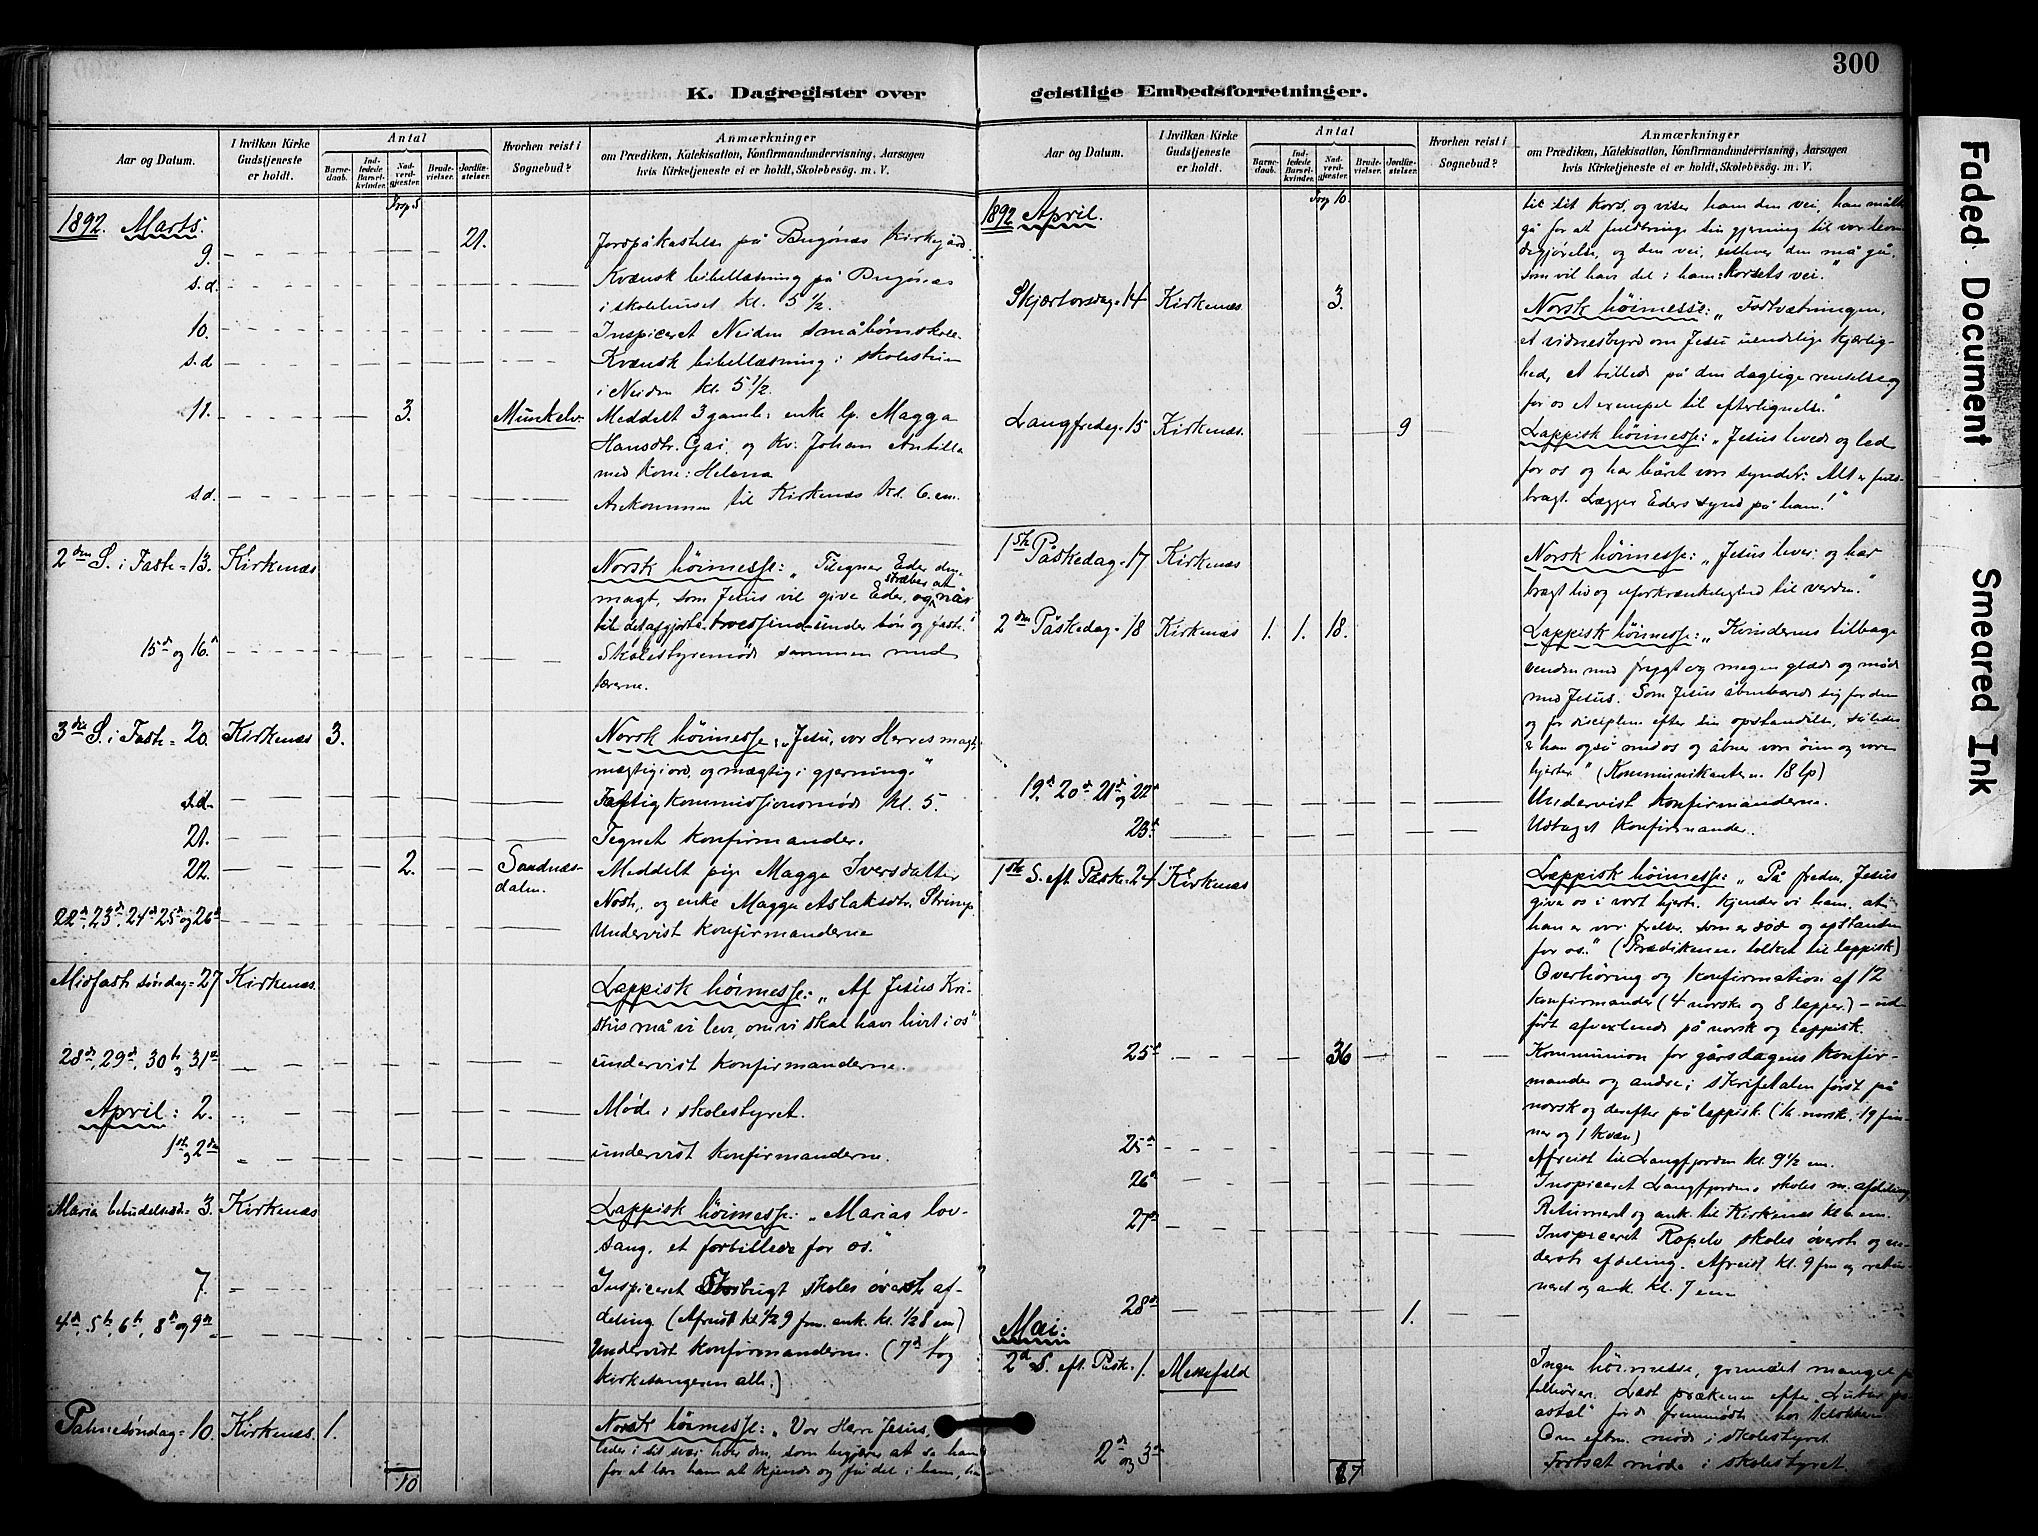 300
K. Dagregister over geistlige Embedsforretninger.
Aar og Datum.
I hvilken Kirke Gudstjeneste er holdt.
Antal
Barne-daab.
Ind-ledede Barsel-kvinder.
Nad-verd-gjæster.
Brude-vielser.
Jordfæ-stelser.
Hvorhen reist i Sognebud?
Anmærkninger
om Prædiken, Katekisation, Konfirmandundervisning, Aarsagen
hvis Kirketjeneste ei er holdt, Skolebesøg. m. V.
Trsp 5
1892. Marts.
9. 21. Jordpåkastelse på Bugönæs Kirkegård.
s.d. Kvænsk bibellæsning på Bugönæs
i skolehuset kl. 5 1/2.
10. Inspiceret Neiden småbørnskole.
s.d Kvænsk bibellæsning i skolestuen
i Neiden kl. 5 1/2.
11. 3. Munkelv. Meddelt 3 gamle: enke lp. Magga
Hansdtr. Gai, og Kv. Johan Antilla
med Kone: Helena
s.d. Ankommen til Kirkenæs kl. 6 em.
2den S. i Faste = 13. Kirkenæs Norsk höimesse: "Tilegner Eder den
magt, som Jesus vil give Eder, og stræber at nå
til det afgjorte trossind under bön og faste."
15de og 16. Skolestyremöde sammen med
lærerne.
3die S. i Faste = 20. Kirkenæs 3. Norsk höimesse: "Jesu, vor Herres magt,
mægtig i ord, og mægtig i gjerning."
s.d. Fattigkommissjonsmöde kl. 5.
21. Tegnet konfirmander.
22. 2. Sandnæs-dalen. Meddelt pige Magga Iversdatter
22de, 23de, 24de 25de og 26de Noste, og enke Magga Aslaksdtr. Strimp.
Undervist konfirmanderne
Midfaste söndag = 27 Kirkenæs. Lappisk höimesse: "Af Jesus Kri-
stus må vi leve, om vi skal have livet i os"
28de, 29de, 30te og 31te undervist konfirmanderne.
April: 2. Möde i skolestyret.
1ste og 2den undervist konfirmanderne.
Maria bebudelsesd = 3. Kirkenæs Lappisk höimesse: "Marias lov-
sang, et forbillede for os."
7. Inspiceret Storbugt skoles överste af-
4de, 5te, 6te, 8de og 9de deling (Afreist kl. 1/2 9 fm. ank. kl. 1/2 8 em)
Undervist konfirmanderne. (7de tog
kirkesangeren alle.)
Palmesöndag = 10. Kirkenæs. 1. Norsk höimesse: "Vor Herre Jesus,
leder i sit svar hver den, som begjærer at se ham
for at lære ham at kjende og få del i ham, hen
10
Aar og Datum.
I hvilken Kirke Gudstjeneste er holdt.
Antal
Barne-daab.
Ind-ledede Barsel-kvinder.
Nad-verd-gjæster.
Brude-vielser.
Jordfæ-stelser.
Hvorhen reist i Sognebud?
Anmærkninger
om Prædiken, Katekisation, Konfirmandundervisning, Aarsagen
hvis Kirketjeneste ei er holdt, Skolebesøg. m. V.
Trsp 10.
1892 April.
til sit kors, og viser ham den vei, han måtte
gå for at fuldbringe sin gjerning til vor
og den vei, enhver den må gå,
som vil have del i ham: korsets vei."
Skjærtorsdag = 14 Kirkenæs. 3. Norsk höimesse: "Fodtvætningen,
et vidnesbyrd om Jesu uendelige kjærlig-
hed, et billede på den daglige renselse og
for os et exempel til efterlignelse."
Langfredag = 15 Kirkenæs. 9 Lappisk höimesse: "Jesus leved og led
for os og har båret vore synder: Alt er fuld-
bragt. Lægger Eders synd på ham!"
1ste Påskedag = 17 Kirkenæs Norsk höimesse: "Jesus lever og har
bragt liv og uforkrænkelighed til verden."
2den Påskedag = 18 Kirkenæs 1. 1. 18. Lappisk höimesse: "Kvindernes tilbage
venden med frygt og megen glæde og möde
med Jesus. Som Jesus åbenbarede sig for dem
og for disciplene efter sin opstandelse, således
er han også med os og åbner vore öine og vore
hjerter." (Kommunikanterne. 18 lp)
19de, 20de 21de og 22de Undervist konfirmanderne.
23de Udtaget konfirmander.
1ste S. eft. Påske. 24 Kirkenæs Lappisk höimesse: "På freden, Jesus
giver os i vort hjerte, kjender vi ham, at
han er vor frelser, som er död og opstanden
for os." (Prædikenen tolket til lappisk)
Overhöring og konfirmation af 12
konfirmander (4 norske og 8 lapper) - ud-
fört afvexlende på norsk og lappisk.
25de 36 Kommunion for gårsdagens konfir-
mander og andre; skriftetalen först på
norsk og derefter på lappisk (16 norsk, 19 fin-
ner og 1 kvæn)
25de Afreist til Langfjorden kl. 9 1/2 em.
26de Inspiceret Langfjordens skoles m. afdeling
Returneret og ank. til Kirkenæs kl. 6 em.
27de Inspiceret Ropelv skoles överste og ne-
derste afdeling. Afreist kl. 9 fm og retur-
neret og ank. kl. 7 em
28de 1.
Mai:
2den S. eft. Påske. 1. Messefald Ingen höimesse, grundet mangel på
tilhörere. Læst prækenen efter "Luther po-
stil" for de fremmödte hos klokkeren
Om eftm. möde i skolestyret.
2de og 3de Fortsat möde i skolestyret.
67
Faded Document
Smeared Ink